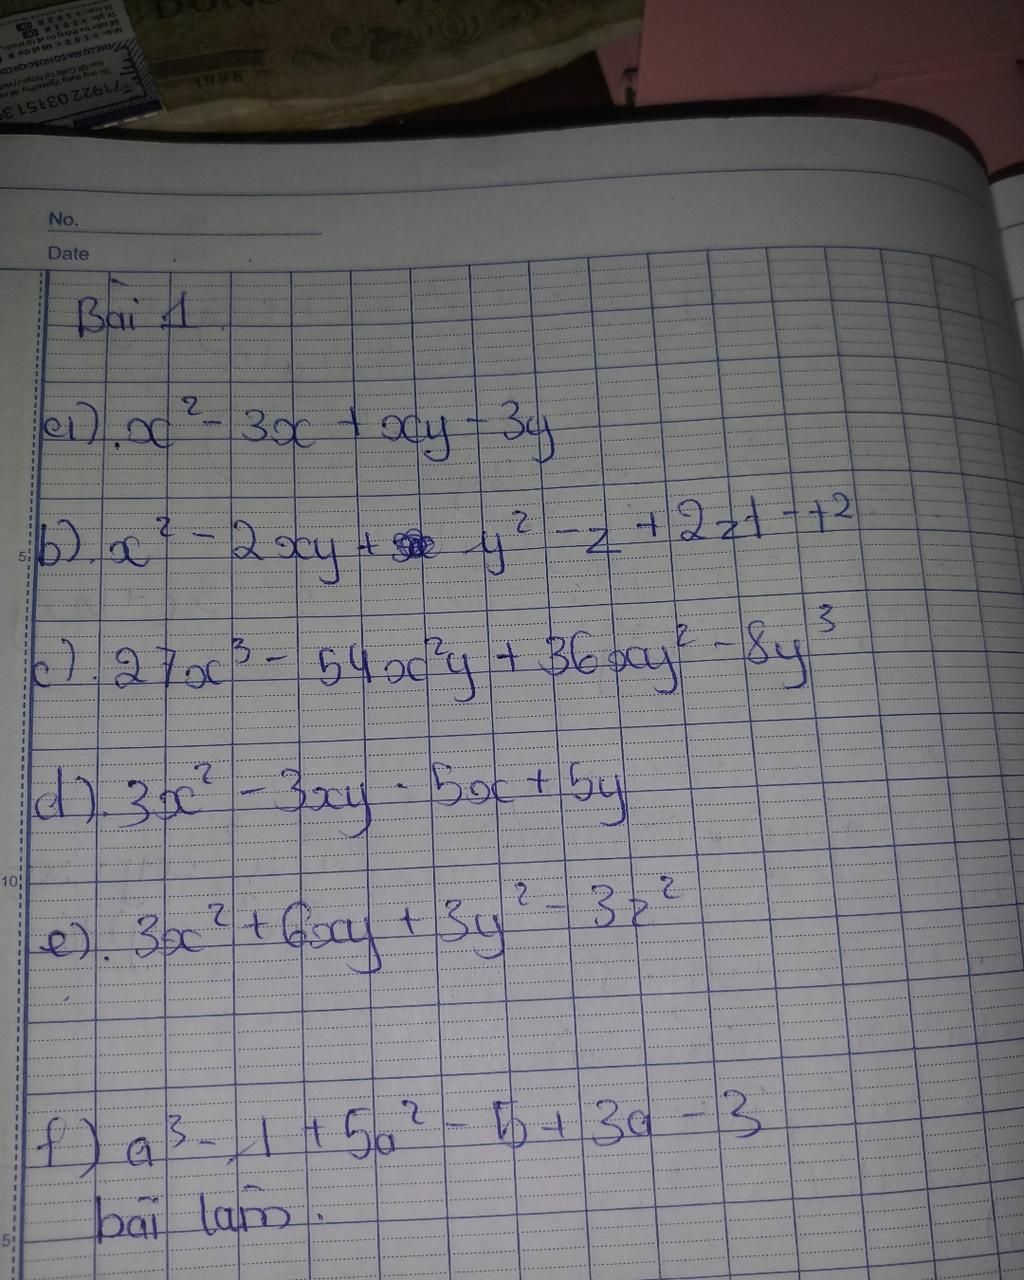 No.
Date
Bài 1
a). x² - 3x + xy - 3y
b). x² - 2xy + y² - z + 2zt - t²
c). 27x³ - 54x²y + 36xy² - 8y³
d). 3x² - 3xy - 5x + 5y
e). 3x² + 6xy + 3y² - 3z²
f) a³ - 1 + 5a² - 5 + 3a - 3
bài làm.
5
10
5